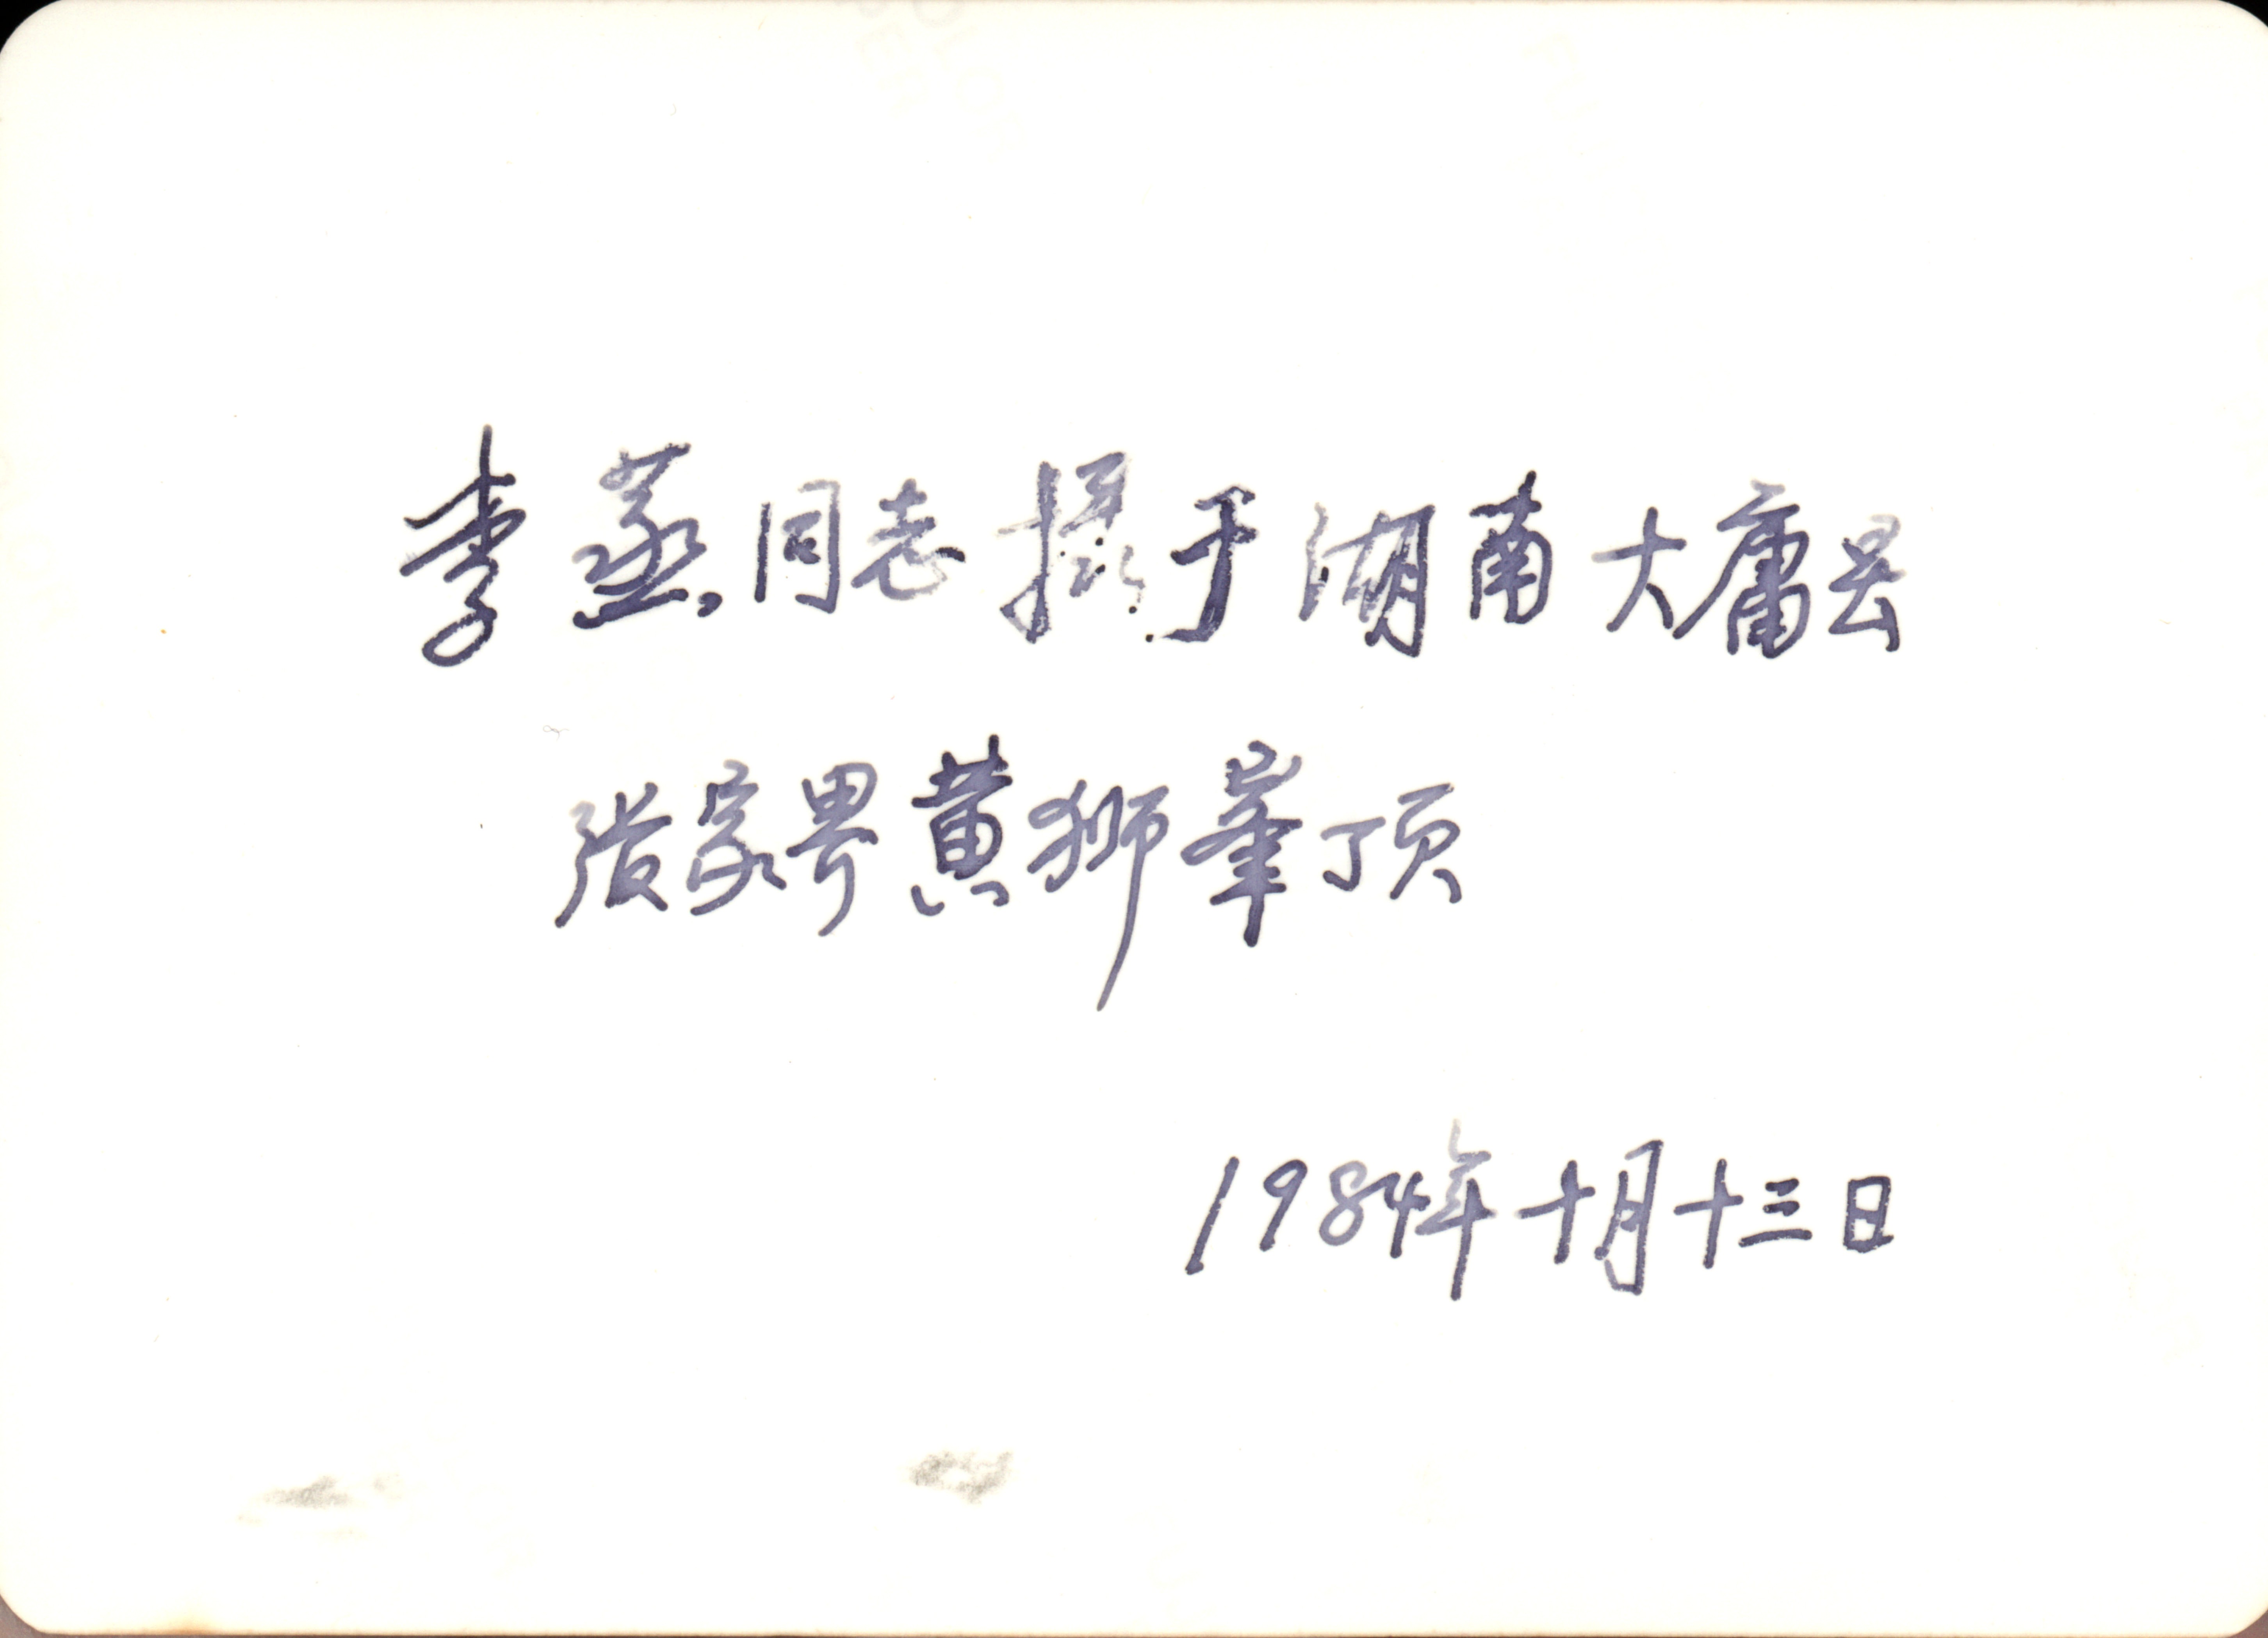 李蒸同志摄于湖南大庸县
张家界黄狮峯顶
1984年十月十三日